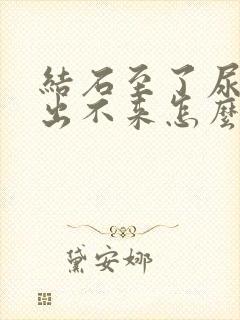 結石至了尿
出不来怎麼
黛安娜